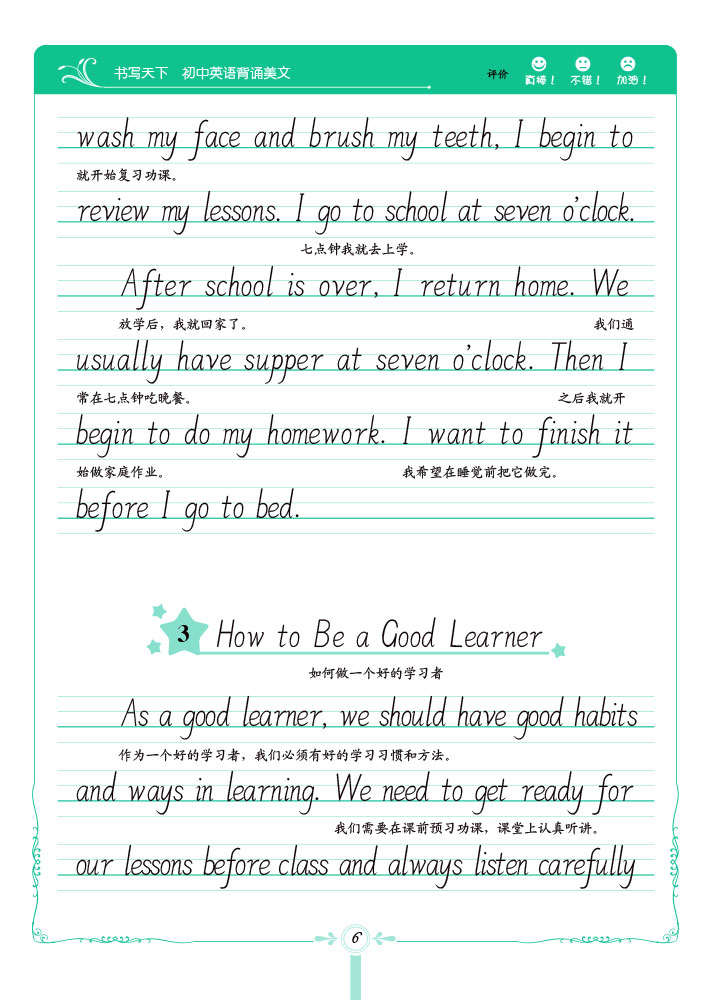 书写天下 初中英语背诵美文
评价 真棒！ 不错！ 加油！
wash my face and brush my teeth, I begin to
就开始复习功课。
review my lessons. I go to school at seven o'clock.
七点钟我就去上学。
After school is over, I return home. We
放学后，我就回家了。 我们通
usually have supper at seven o'clock. Then I
常在七点钟吃晚餐。 之后我就开
begin to do my homework. I want to finish it
始做家庭作业。 我希望在睡觉前把它做完。
before I go to bed.
3 How to Be a Good Learner
如何做一个好的学习者
As a good learner, we should have good habits
作为一个好的学习者，我们必须有好的学习习惯和方法。
and ways in learning. We need to get ready for
我们需要在课前预习功课，课堂上认真听讲。
our lessons before class and always listen carefully
6